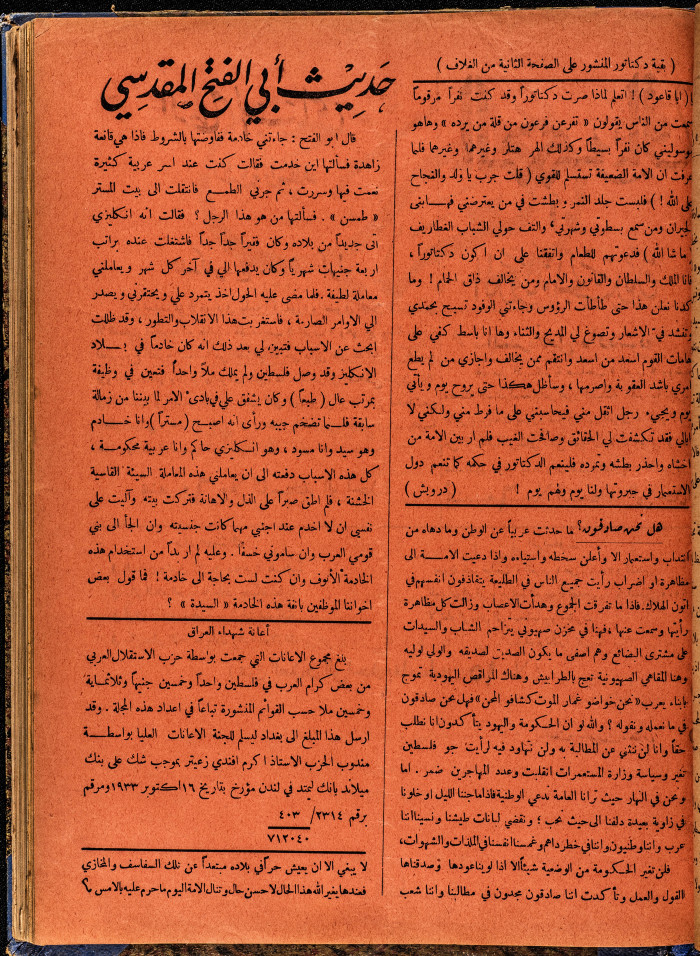 ( بقية دكتاتور المنشور على الصفحة الثانية من الغلاف )
( ابا قاعود ) ! اتعلم لماذا صرت دكتاتوراً وقد كنت نفراً مرقوماً
من الناس يقولون « تفرعن فرعون من قلة من يرده » وهاهو
موسوليني كان نفراً بسيطاً وكذلك الهر هتلر وغيرهما وغيرهما فلما
عرفت ان الامة الضعيفة تستسلم للقوي ( قلت جرب يا ولد والنجاح
على الله ! ) فلبست جلد النمر و بطشت في من يعترضني فهابني
الجيران ومن سمع بسطوتي وشهرتي ، والتف حولي الشباب الغطاريف
( ما شا الله ) فدعوتهم للطعام واتفقنا على ان اكون دكتاتوراً ،
فأنا الملك والسلطان والقانون والامام ومن يخالف ذاق الحمام ! وما
كدنا نعلن هذا حتى طأطأت الرؤوس وجاءتني الوفود تسبح بحمدي
وتنشد فيّ الاشعار وتصوغ لي المديح والثناء وها انا باسط كفي على
هامات القوم اسعد من اسعد وانتقم ممن يخالف واجازي من لم يطع
امري باشد العقوبة واصرمها ، وسأظل هكذا حتى يروح يوم ويأتي
يوم ويجيء رجل اثقل مني فيحاسبني على ما فرط مني ولكني لا
ابالي فقد تكشفت لي الحقائق وصافحت الغيب فلم ار بين الامة من
اخشاه واحذر بطشه وتمرده فلينعم الدكتاتور في حكمه كما تنعم دول
الاستعمار في جبروتها ولنا يوم ولهم يوم ! ( درويش )
هل نحن صادقون؟ ما حدثت عربياً عن الوطن وما دهاه من
انتداب واستعمار الا وأعلن سخطه واستياءه واذا دعيت الامة الى
مظاهرة او اضراب رأيت جميع الناس في الطليعة يتقاذفون انفسهم في
أتون الهلاك. فاذا ما تفرقت الجموع وهدأت الاعصاب وزالت كل مظاهرة
رأيتها وسمعت عنها ، فهنا في مخزن صهيوني يتزاحم الشباب والسيدات
على مشترى البضائع وهم اصفى ما يكون الصديق لصديقه والولي لوليه
وهنا المقاهي الصهيونية تعج بالطرابيش وهناك المراقص اليهودية تموج
بأبناء يعرب « نحن خواضو غمار الموت كشافو المحن » فهل نحن صادقون
في ما نعمله ونقوله ؟ والله لو ان الحكومة واليهود يتأكدون انا نطلب
حقاً وانا لن ننثني عن المطالبة به ولن نتهاود فيه لرأيت جو فلسطين
تغير وسياسة وزارة المستعمرات انقلبت وعدد المهاجرين ضمر . اما
ونحن في النهار حيث ترانا العامة ندعي الوطنية فاذا ما جننا الليل او خلونا
في زاوية بعيدة دلفنا الى حيث نحب ؛ ونقضي لبانات طيشنا ونسينا اننا
عرب واننا وطنيون واننا في خطر داهم وغمسنا انفسنا في الملذات والشهوات،
فلن تغير الحكومة من الوضعية شيئاً الا اذا لوينا عودها وصدقناها
القول والعمل وتأكدت اننا صادقون مجدون في مطالبنا واننا شعب
حديث أبي الفتح المقدسي
قال ابو الفتح : جاءتني خادمة ففاوضتها بالشروط فاذا هي قانعة
زاهدة فسألتها اين خدمت فقالت كنت عند اسر عربية كثيرة
نعمت فيها وسررت ، ثم جرني الطمع فانتقلت الى بيت المستر
« طمسن » . فسألتها من هو هذا الرجل ؟ فقالت انه انكليزي
اتى جديداً من بلاده وكان فقيراً جداً جداً فاشتغلت عنده براتب
اربعة جنيهات شهرياً وكان يدفعها الي في آخر كل شهر ويعاملني
معاملة لطيفة . فلما مضى عليه الحول اخذ يتمرد علي ويحتقرني ويصدر
الي الاوامر الصارمة ، فاستغربت هذا الانقلاب والتطور ، وقد ظللت
ابحث عن الاسباب فتبين لي بعد ذلك انه كان خادماً في بلاد
الانكليز وقد وصل فلسطين ولم يملك ملاً واحداً فتعين في وظيفة
بمرتب عال ( طبعاً ) وكان يشفق علي في بادئ الامر لما بيننا من زمالة
سابقة فلما تضخم جيبه ورأى انه اصبح ( مستراً ) وانا خادم
وهو سيد وانا مسود ، وهو انكليزي حاكم وانا عربية محكومة ،
كل هذه الاسباب دفعته الى ان يعاملني هذه المعاملة السيئة القاسية
الخشنة ، فلم اطق صبراً على الذل والاهانة فتركت بيته وآليت على
نفسي ان لا اخدم عند اجنبي مهما كانت جنسيته وان الجأ الى بني
قومي العرب وان ساموني خسفاً . وعليه لم ار بداً من استخدام هذه
الخادمة الأنوف وان كنت لست بحاجة الى خادمة ! فما قول بعض
اخواننا الموظفين بانفة هذه الخادمة « السيدة » ؟
أعانة شهداء العراق
بلغ مجموع الاعانات التي جمعت بواسطة حزب الاستقلال العربي
من بعض كرام العرب في فلسطين واحداً وخمسين جنيهاً وثلاثماية
وخمسين ملا حسب القوائم المنشورة تباعاً في اعداد هذه المجلة . وقد
ارسل هذا المبلغ الى بغداد ليسلم للجنة الاعانات العليا بواسطة
مندوب الحزب الاستاذ اكرم افندي زعيتر بموجب شك على بنك
ميلاند بانك ليمتد في لندن مؤرخ بتاريخ ١٦ اكتوبر ١٩٣٣ ومرقم
برقم ٢٣١٤/ ٤٠٣
٧١٢٠٤٠
لا يبغي الا ان يعيش حراً في بلاده مبتعداً عن تلك السفاسف والمخازي
فعندها يغير الله هذا الحال لاحسن حال وتنال الامة اليوم ما حرم عليه بالامس